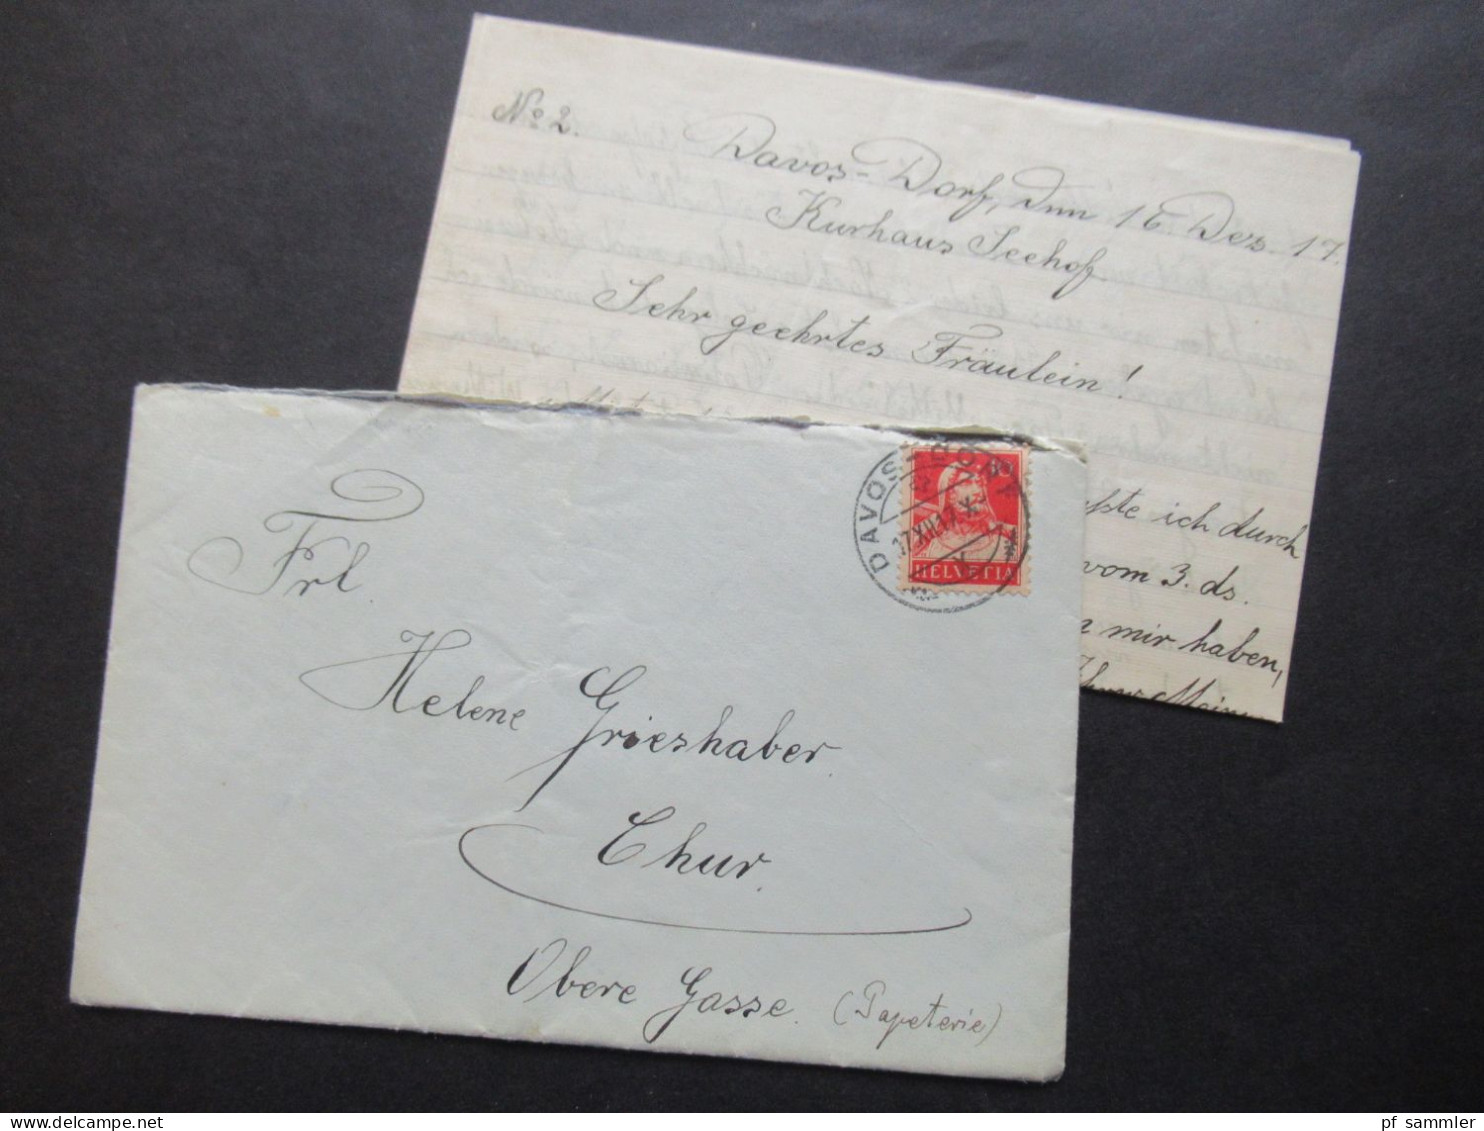 No 2.
Davos-Dorf, den 16 Dez. 17.
Kurhaus Seehof
Sehr geehrtes Fräulein!
ich durch
vom 3. ds.
mir haben,
DAVOS-DORF
17.XII.17.X
HELVETIA
Frl.
Helene Grieshaber.
Chur.
Obere Gasse. (Papeterie)
pf_sammler